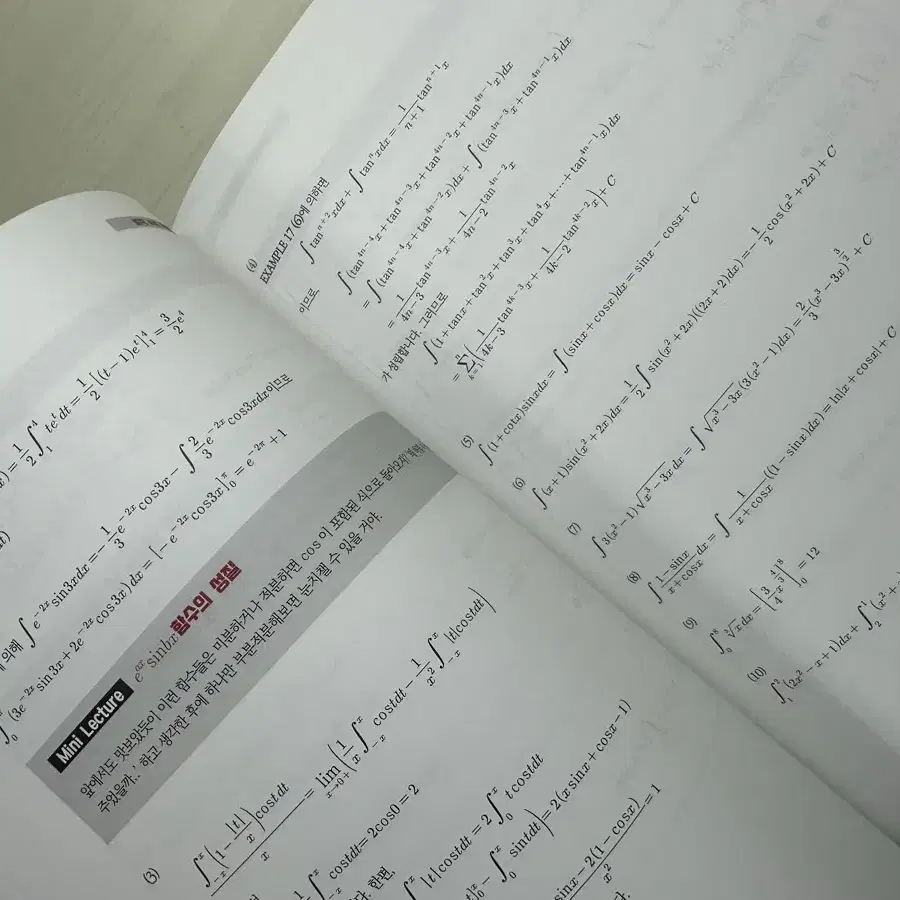 x) = \frac{1}{2}∫_1^4 te^t dt = \frac{1}{2}[(t-1)e^t]_1^4 = \frac{3}{2}e^4
의해 ∫e^{-2x}sin3xdx = -\frac{1}{3}e^{-2x}cos3x - ∫\frac{2}{3}e^{-2x}cos3xdx이므로
∫_0 (3e^{-2x}sin3x+2e^{-2x}cos3x)dx = [-e^{-2x}cos3x]_0^π = e^{-2π}+1
Mini Lecture e^{ax}sinbx함수의 성질
앞에서도 맛보았듯이 이런 함수들은 미분하거나 적분하면 cos이 포함된 식으로 돌아오지!
주었을까..' 하고 생각한 후에 하나만 부분적분해보면 눈치챌 수 있을 거야.
(3)
\frac{∫_{-x}^x (1-\frac{|t|}{x})costdt}{x} = lim_{x→0+}(\frac{1}{x}∫_{-x}^x costdt - \frac{1}{x^2}∫_{-x}^x |t|costdt)
∫_{-x}^x costdt = 2cos0 = 2
다. 한편,
∫^x |t|costdt = 2∫_0^x tcostdt
]_0^x - ∫_0^x sintdt) = 2(xsinx+cosx-1)
\frac{sinx-2(1-cosx)}{x^2} = 1
(4)
EXAMPLE 17 (6)에 의하면
∫tan^{n+2}xdx + ∫tan^n xdx = \frac{1}{n+1}tan^{n+1}x
이므로,
∫(tan^{4n-4}x+tan^{4n-3}x+tan^{4n-2}x+tan^{4n-1}x)dx
= ∫(tan^{4n-4}x+tan^{4n-2}x)dx + ∫(tan^{4n-3}x+tan^{4n-1}x)dx
= \frac{1}{4n-3}tan^{4n-3}x + \frac{1}{4n-2}tan^{4n-2}x
가 성립합니다. 그러므로
∫(1+tanx+tan^2x+tan^3x+tan^4x+⋯+tan^{4n-1}x)dx
= ∑_{k=1}^n(\frac{1}{4k-3}tan^{4k-3}x + \frac{1}{4k-2}tan^{4k-2}x) + C
(5)
∫(1+cotx)sinxdx = ∫(sinx+cosx)dx = sinx - cosx + C
(6)
∫(x+1)sin(x^2+2x)dx = \frac{1}{2}∫sin(x^2+2x)((2x+2)dx) = -\frac{1}{2}cos(x^2+2x) + C
(7)
∫3(x^2-1)\sqrt{x^3-3x}dx = ∫\sqrt{x^3-3x}(3(x^2-1)dx) = \frac{2}{3}(x^3-3x)^{\frac{3}{2}} + C
(8)
∫\frac{1-sinx}{x+cosx}dx = ∫\frac{1}{x+cosx}((1-sinx)dx) = ln|x+cosx| + C
(9)
∫_0^8 \sqrt[3]{x}dx = [\frac{3}{4}x^{\frac{4}{3}}]_0^8 = 12
(10)
∫_1^2(2x^2-x+1)dx + ∫_2^1(x^2+